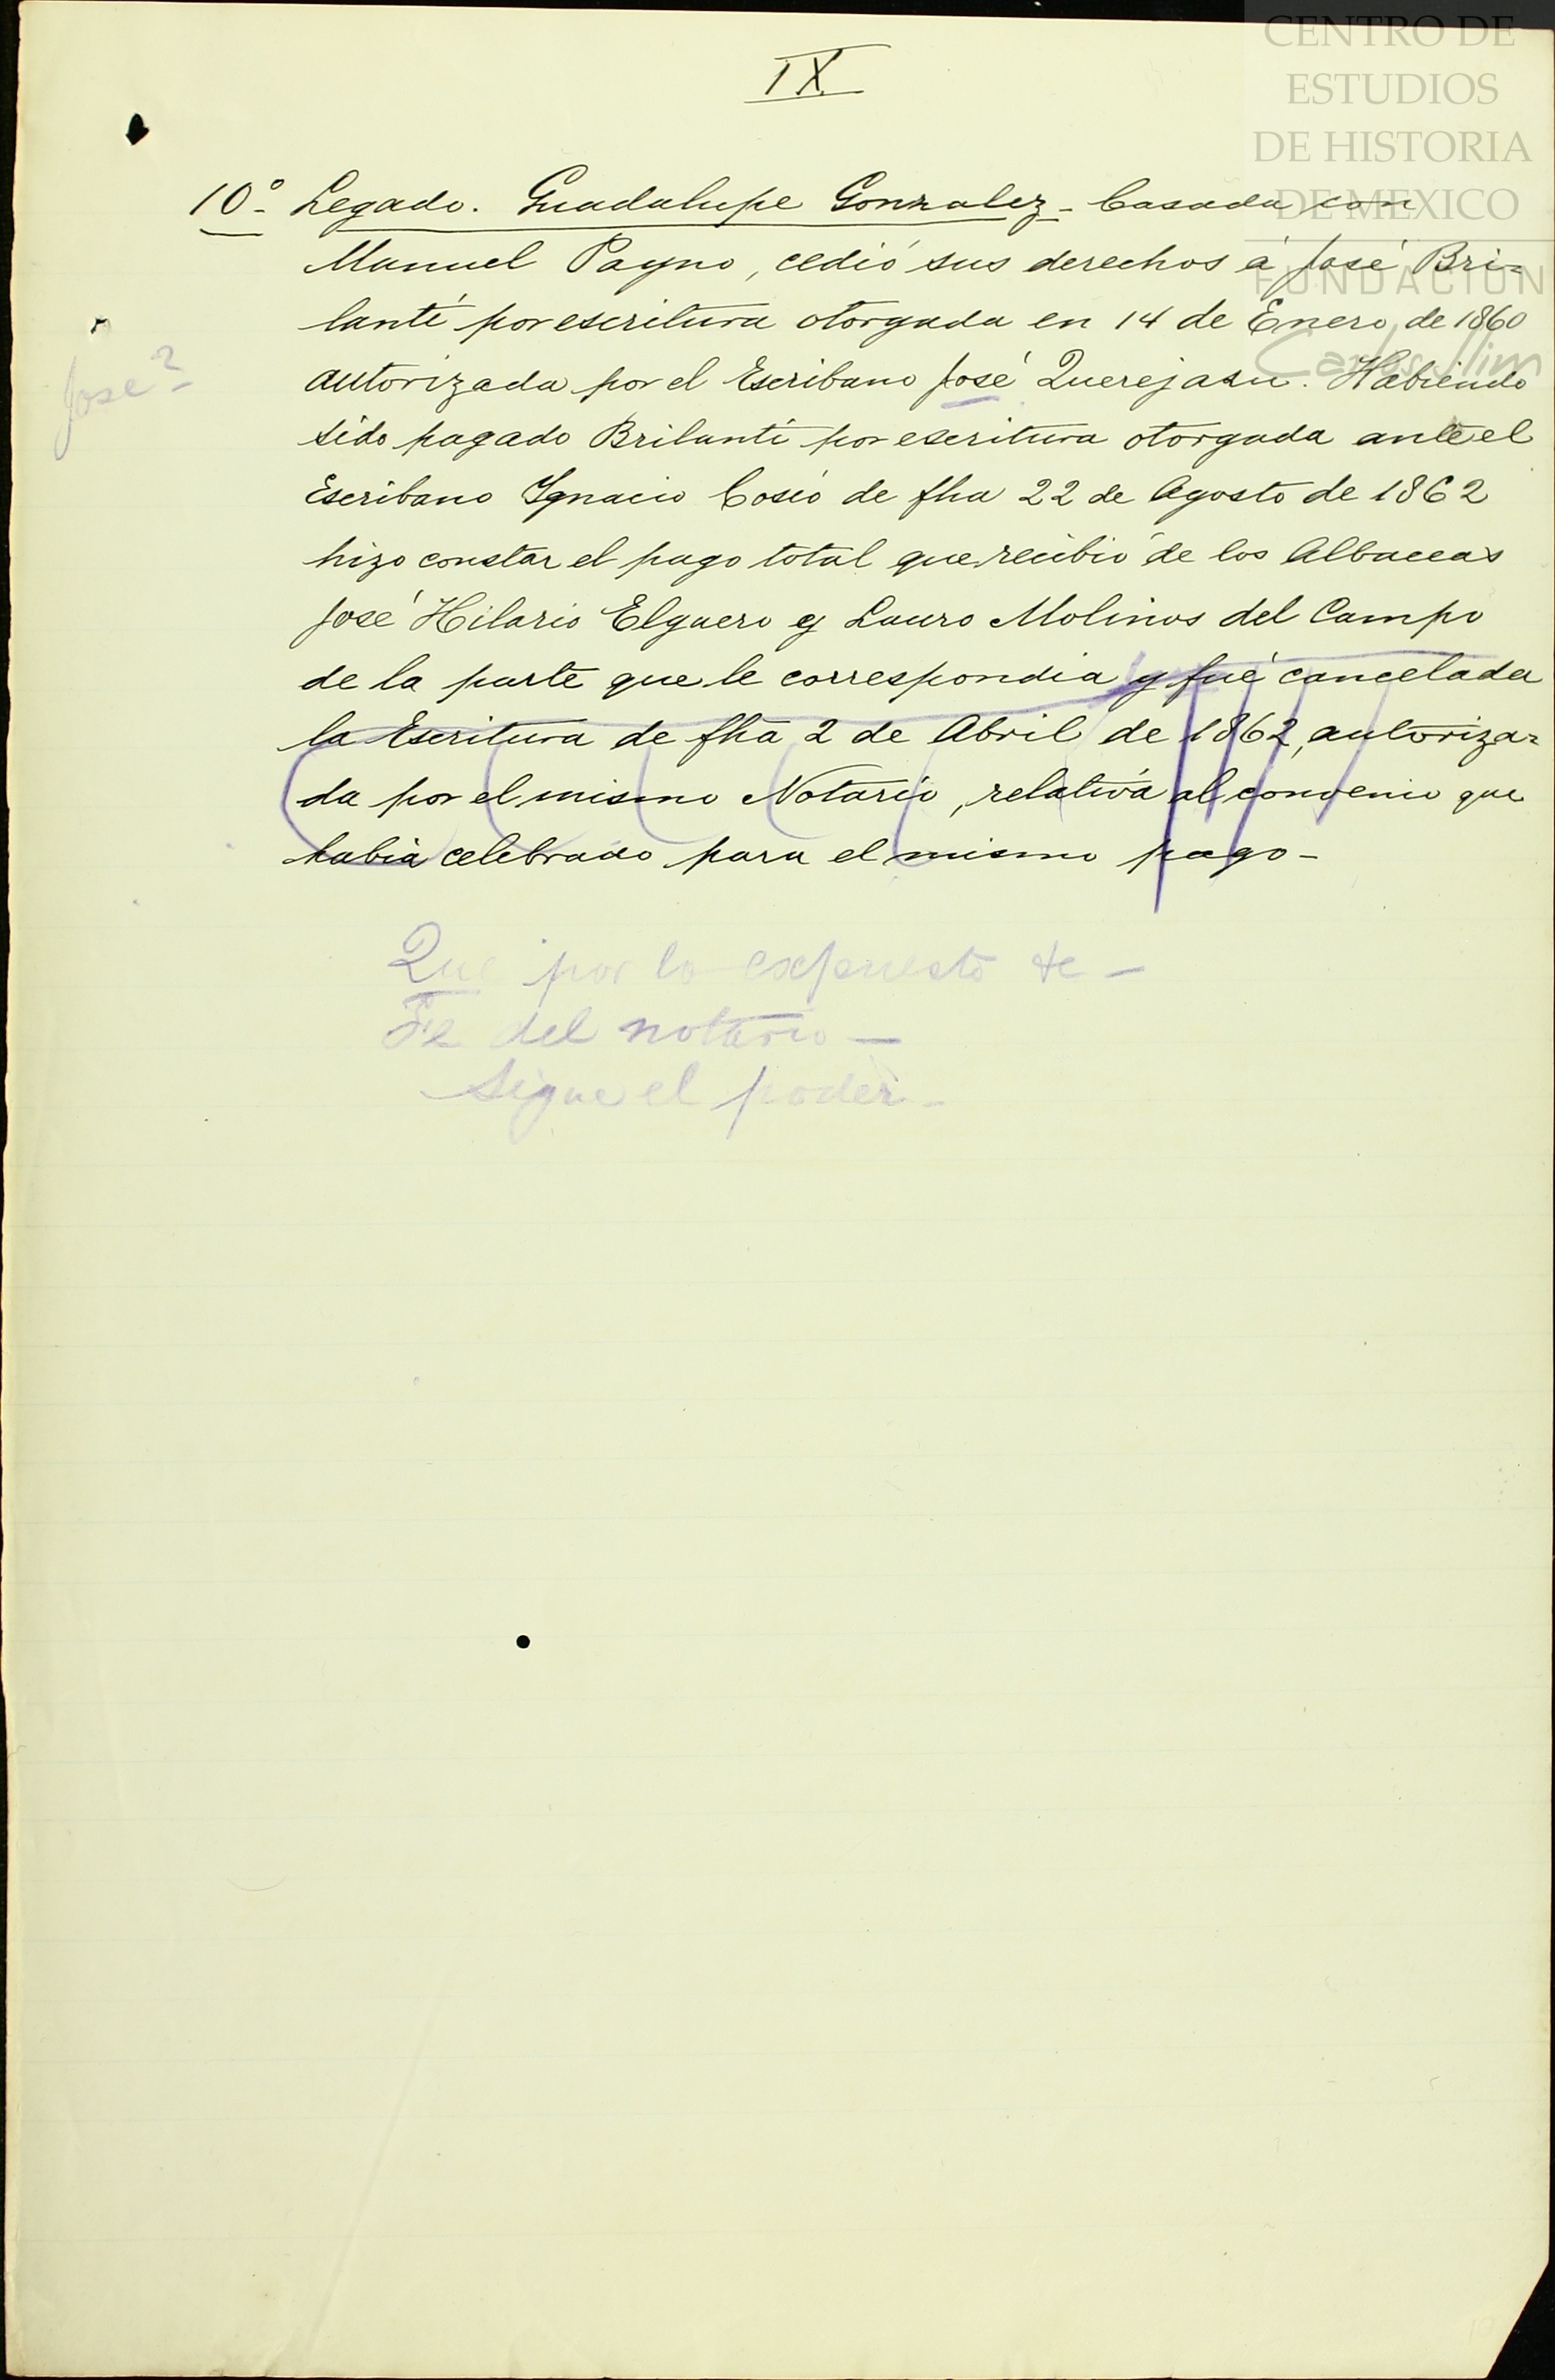 IX
CENTRO DE
ESTUDIOS
DE HISTORIA
DE MEXICO
FUNDACIÓN
Carlos Slim
10º Legado. Guadalupe Gonzalez - Casada con
Manuel Payno, cedió sus derechos á José Bri-
lanti por escritura otorgada en 14 de Enero, de 1860
autorizada por el Escribano José Querejasu. Habiendo
José?
sido pagado Brilanti por escritura otorgada ante el
Escribano Ygnacio Cosio de fha 22 de Agosto de 1862
hizo constar el pago total que recibió de los Albaceas
José Hilario Elguero y Lauro Molinos del Campo
de la parte que le correspondia y fué cancelada
la Escritura de fha 2 de Abril de 1862, autoriza-
da por el mismo Notario, relativa al convenio que
habia celebrado para el mismo pago -
Que por lo expuesto &c -
Fe del notario -
Sigue el poder -